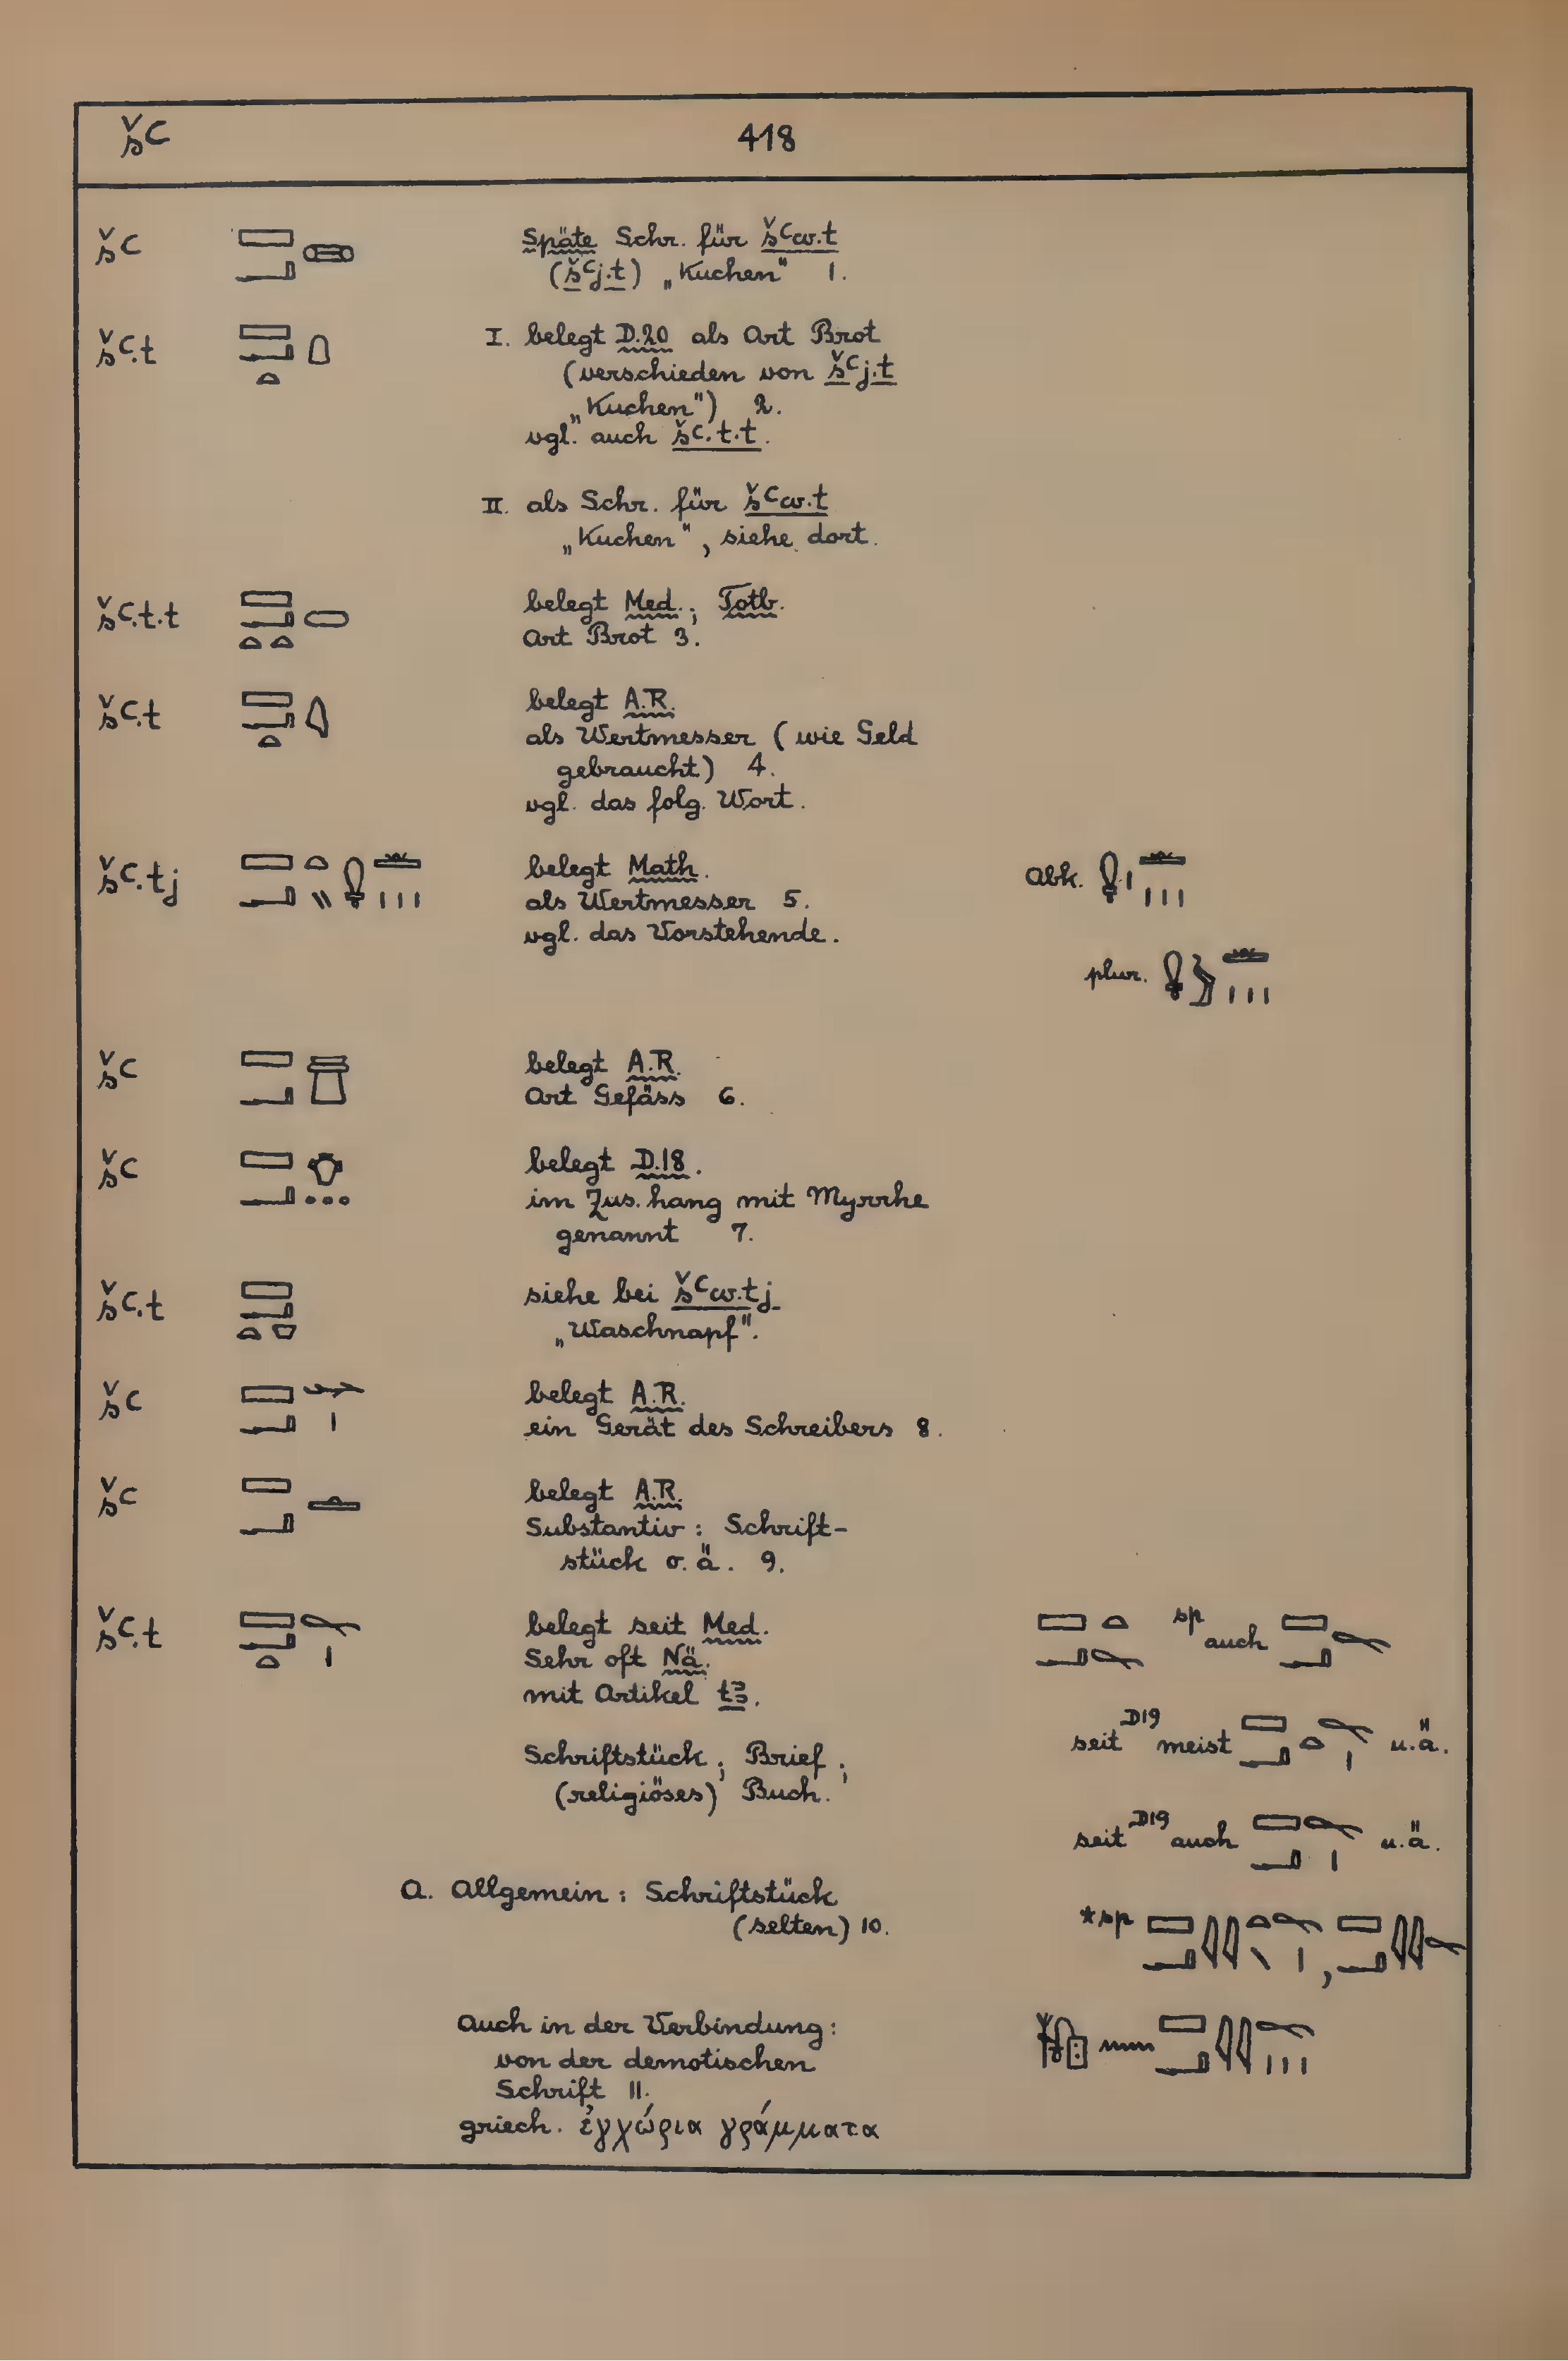 šꜥ 418
šꜥ Späte Schr. für šꜥw.t
(šꜥj.t) „Kuchen" 1.
šꜥ.t I. belegt D.20 als Art Brot
(verschieden von šꜥj.t
„Kuchen") 2.
vgl. auch šꜥ.t.t.
II. als Schr. für šꜥw.t
„Kuchen", siehe dort.
šꜥ.t.t belegt Med.; Totb.
Art Brot 3.
šꜥ.t belegt A.R.
als Wertmesser (wie Geld
gebraucht) 4.
vgl. das folg. Wort.
šꜥ.tj belegt Math. Abk.
als Wertmesser 5.
vgl. das Vorstehende.
plur.
šꜥ belegt A.R.
Art Gefäss 6.
šꜥ belegt D.18.
im Zus.hang mit Myrrhe
genannt 7.
šꜥ.t siehe bei šꜥw.tj
„Waschnapf".
šꜥ belegt A.R.
ein Gerät des Schreibers 8.
šꜥ belegt A.R.
Substantiv: Schrift-
stück o.ä. 9.
šꜥ.t belegt seit Med. sp auch
Sehr oft Nä.
mit Artikel tꜣ.
seit D19 meist u.ä.
Schriftstück; Brief;
(religiöses) Buch.
seit D19 auch u.ä.
A. Allgemein: Schriftstück
(selten) 10.
*sp ,
Auch in der Verbindung:
von der demotischen
Schrift 11.
griech. ἐγχώρια γράμματα